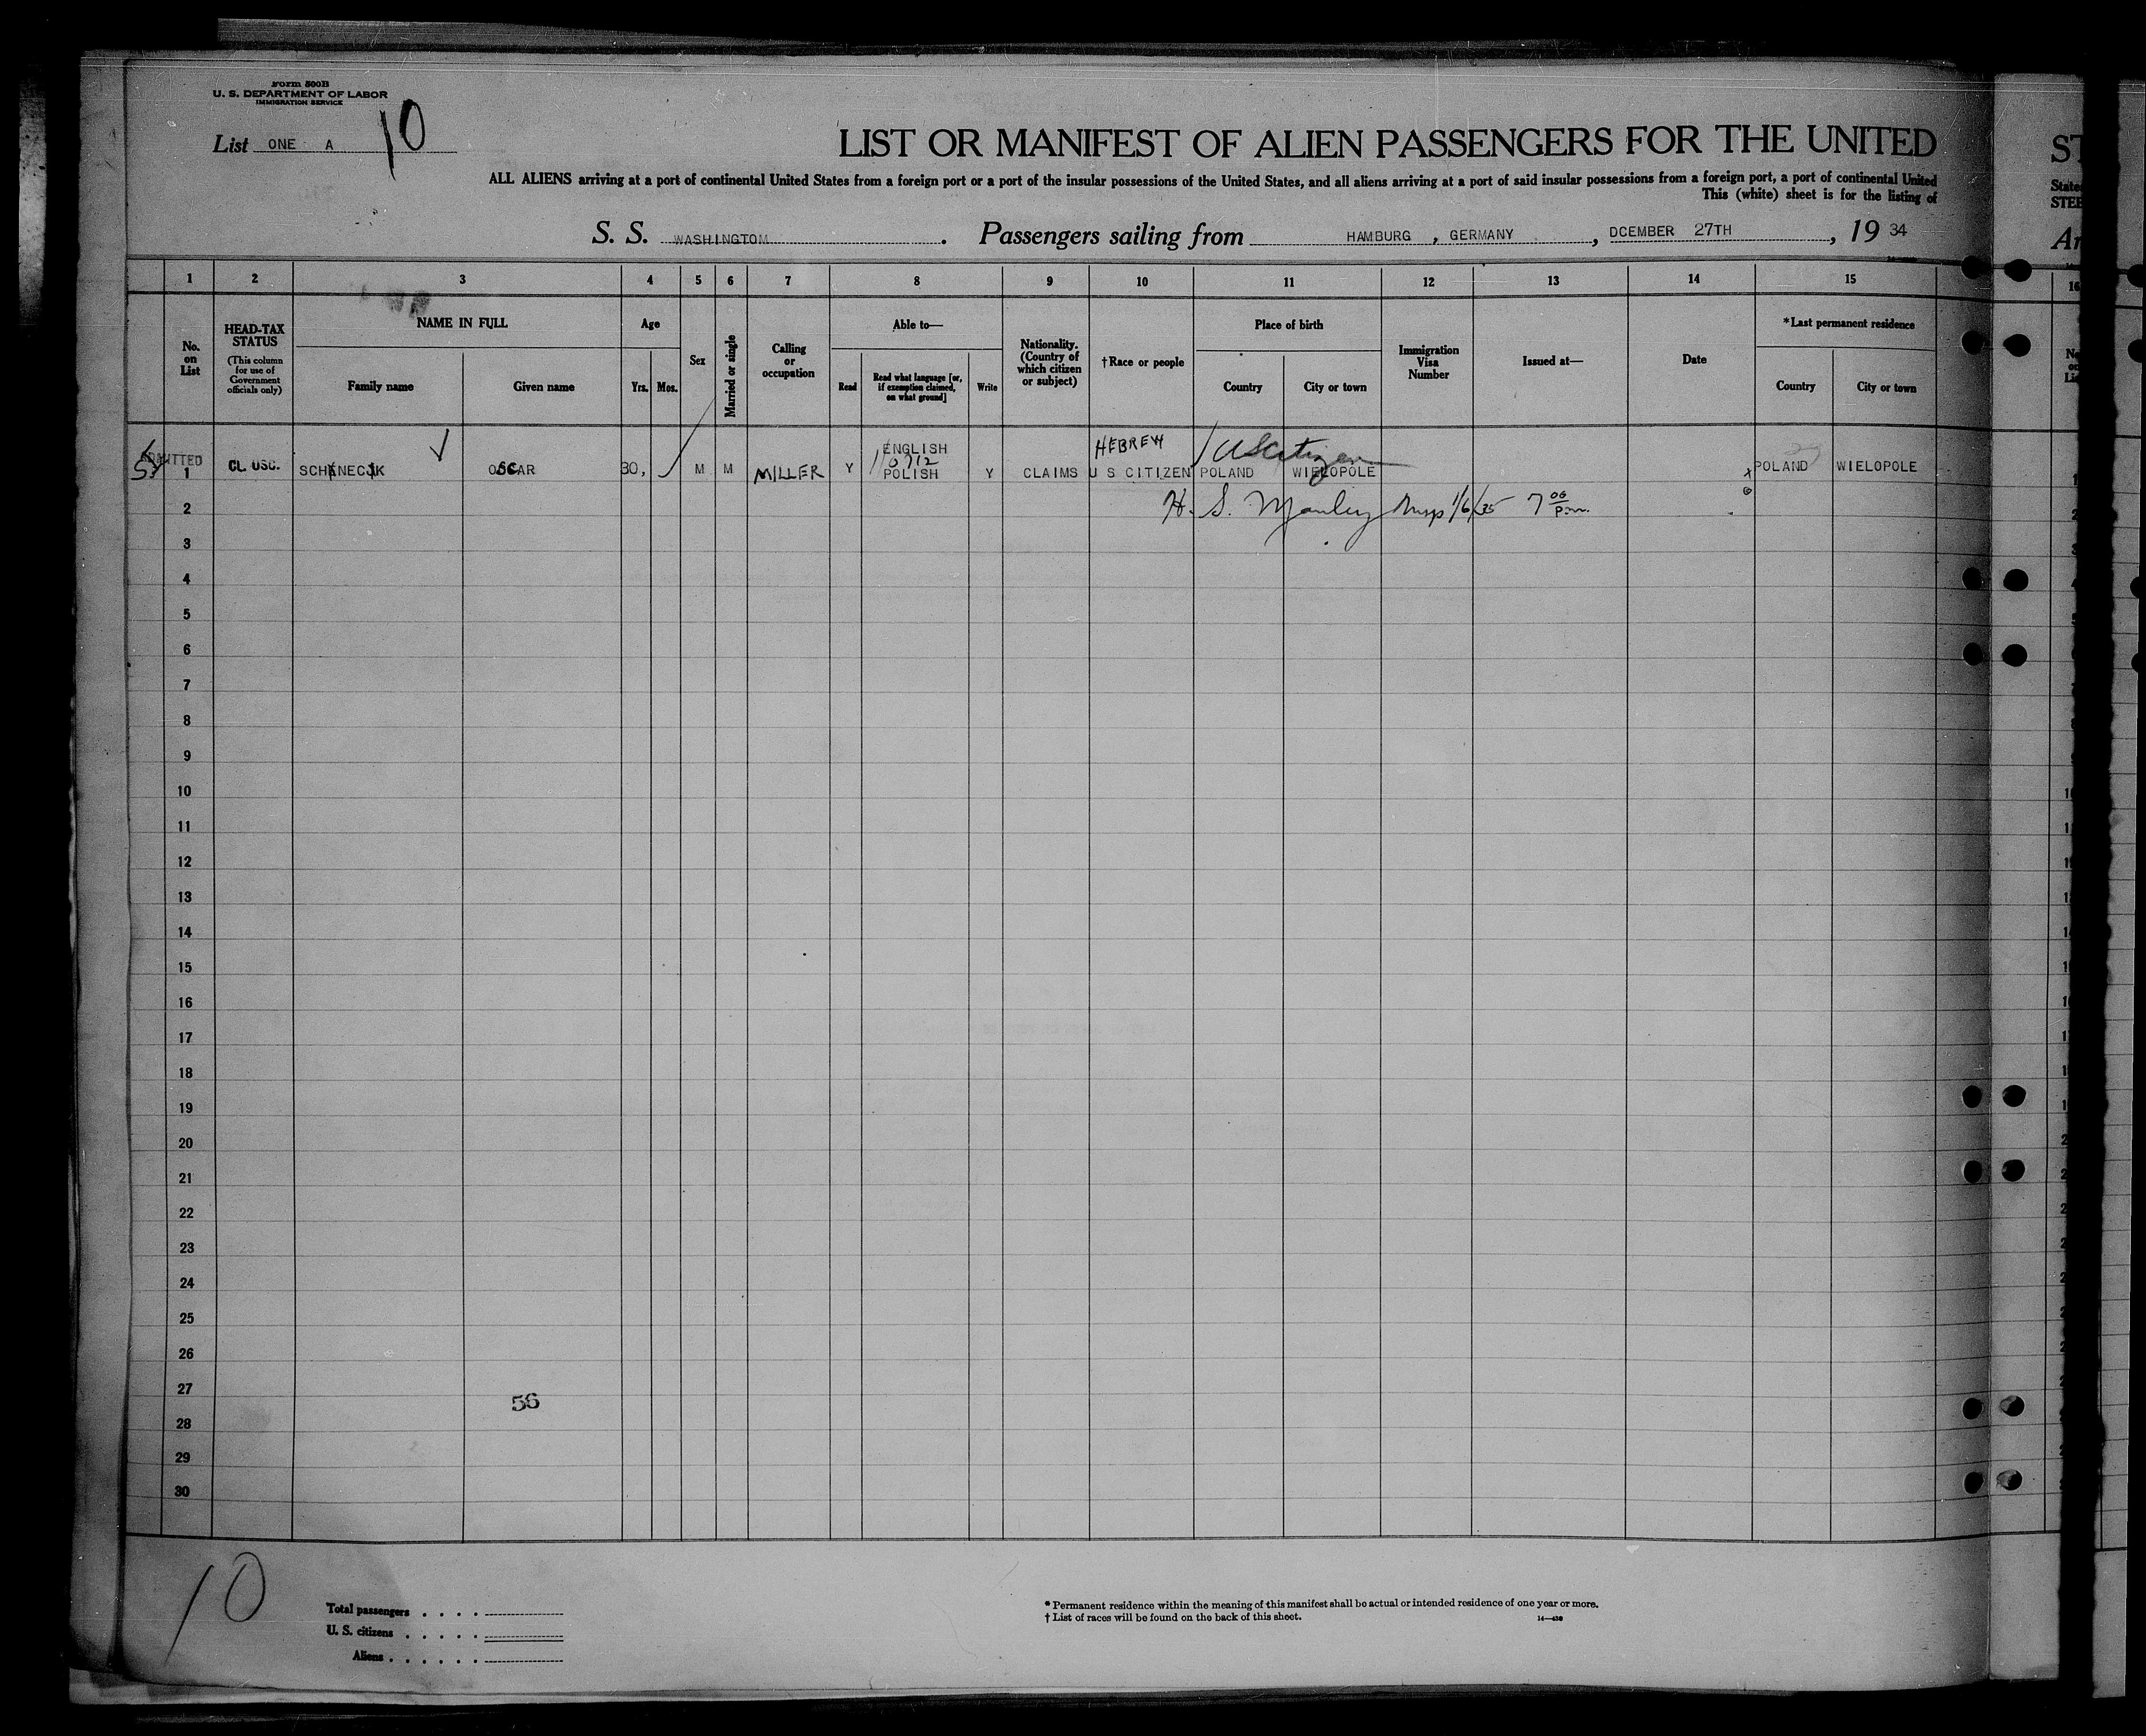 Form 500B
U. S. DEPARTMENT OF LABOR
IMMIGRATION SERVICE
List ONE A 10
LIST OR MANIFEST OF ALIEN PASSENGERS FOR THE UNITED
ST
ALL ALIENS arriving at a port of continental United States from a foreign port or a port of the insular possessions of the United States, and all aliens arriving at a port of said insular possessions from a foreign port, a port of continental United
State
This (white) sheet is for the listing of
STEE
S. S. WASHINGTOM. Passengers sailing from HAMBURG , GERMANY, DCEMBER 27TH, 19 34
Ar
1 2 3 4 5 6 7 8 9 10 11 12 13 14 15 16
No. on List
HEAD-TAX STATUS
(This column for use of Government officials only)
NAME IN FULL
Family name
Given name
Age
Yrs. Mos.
Sex
Married or single
Calling or occupation
Able to—
Read
Read what language [or, if exemption claimed, on what ground]
Write
Nationality. (Country of which citizen or subject)
†Race or people
Place of birth
Country
City or town
Immigration Visa Number
Issued at—
Date
*Last permanent residence
Country
City or town
HEBREW US Citizen
ENGLISH
ADMITTED
1 CL. USC. OSCAR 30, M M MILLER Y POLISH Y CLAIMS U S CITIZEN POLAND WIELOPOLE POLAND WIELOPOLE
2 H. S. Manley Insp 1/6/35 7 00 P.m.
3
4
5
6
7
8
9
10
11
12
13
14
15
16
17
18
19
20
21
22
23
24
25
26
27
56
28
29
30
10
Total passengers . . . .
U. S. citizens . . . . .
Aliens . . . . . .
* Permanent residence within the meaning of this manifest shall be actual or intended residence of one year or more.
† List of races will be found on the back of this sheet. 14—430